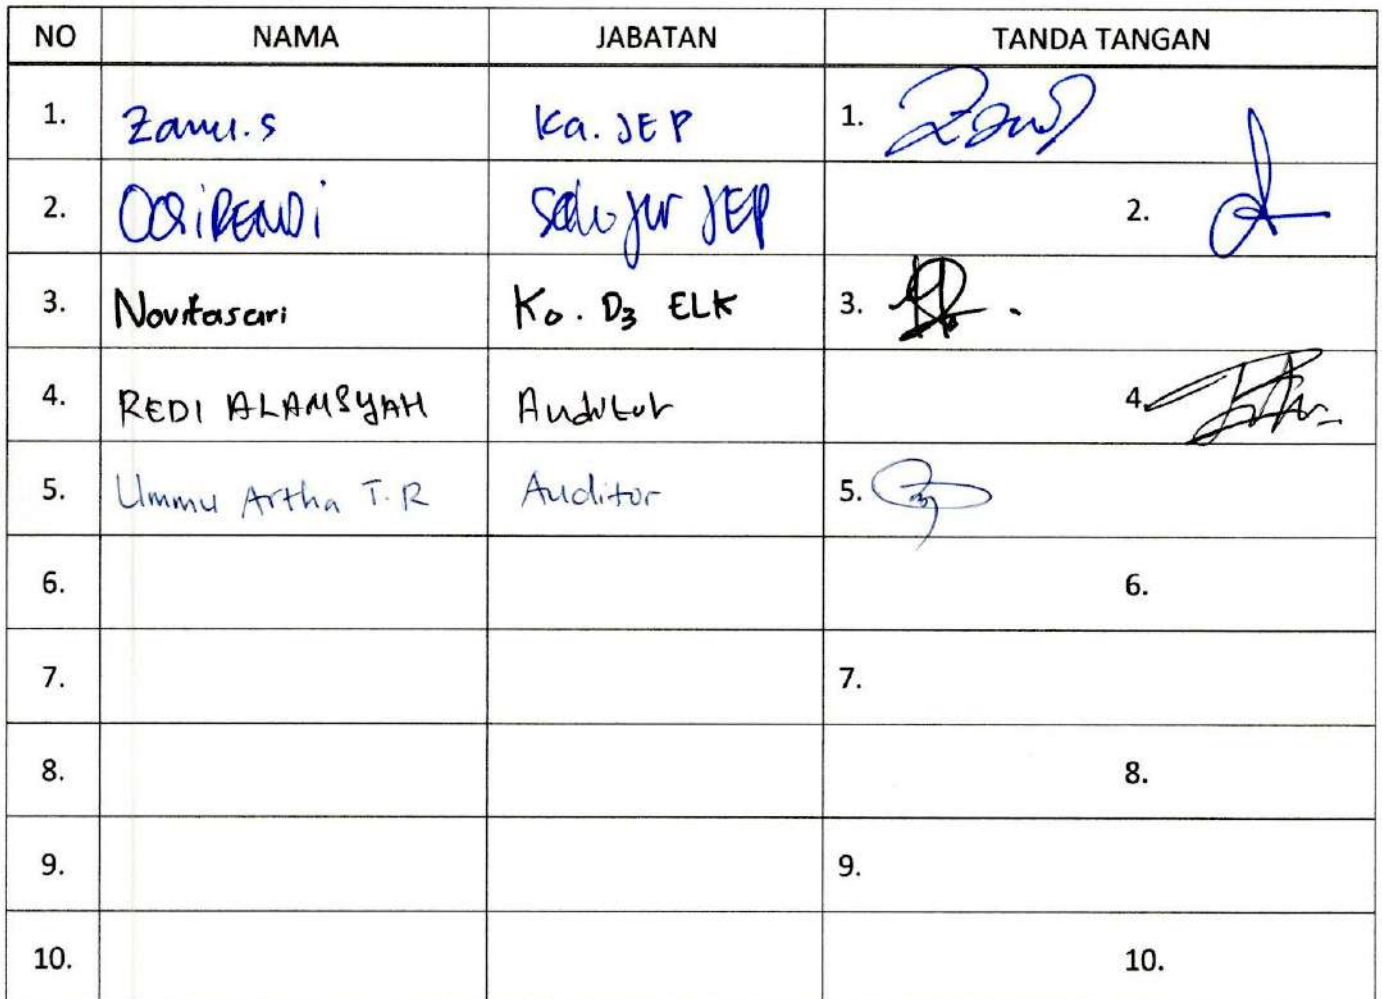 NO NAMA JABATAN TANDA TANGAN
1. Zamu.s Ka. JEP 1.
2. OCSiRENDi Sekjur JEP 2.
3. Novitasari Ko. D3 ELK 3.
4. REDI ALAMSYAH Auditor 4.
5. Ummu Artha T.R Auditor 5.
6. 6.
7. 7.
8. 8.
9. 9.
10. 10.